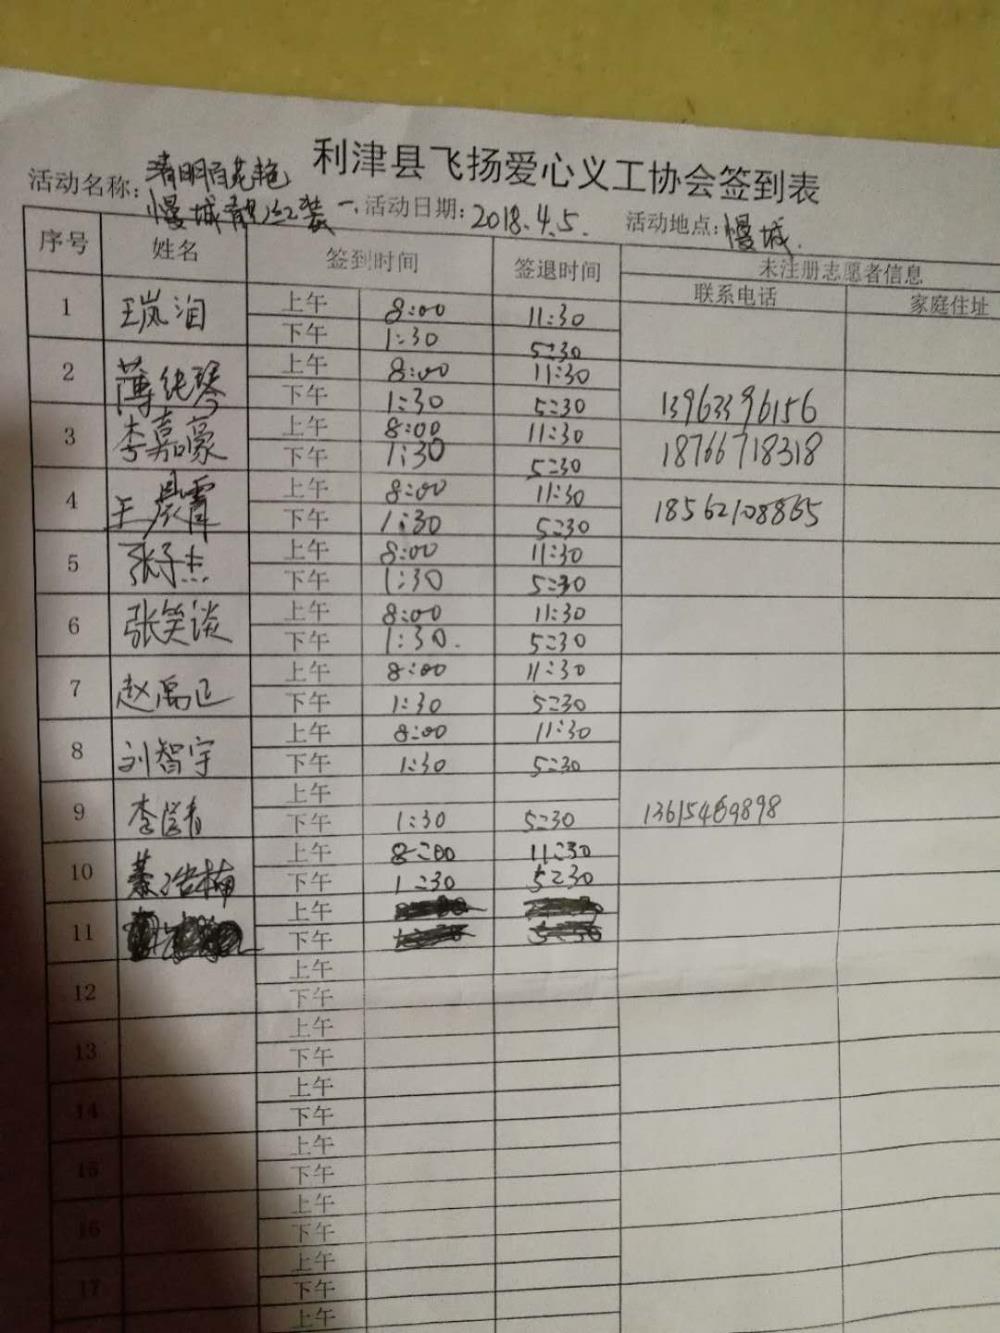 利津县飞扬爱心义工协会签到表
活动名称: 清明百花艳
慢城靓红装 一. 活动日期: 2018.4.5. 活动地点: 慢城.
序号 姓名 签到时间 签退时间 未注册志愿者信息
联系电话 家庭住址
1 王岚 上午 8:00 11:30
下午 1:30 5:30
2 薄纯琴 上午 8:00 11:30
下午 1:30 5:30 13963396156
3 李嘉豪 上午 8:00 11:30
下午 1:30 5:30 18766718318
4 王晨霄 上午 8:00 11:30
下午 1:30 5:30 18562108865
5 张子杰 上午 8:00 11:30
下午 1:30 5:30
6 张笑谈 上午 8:00 11:30
下午 1:30. 5:30
7 赵禹 上午 8:00 11:30
下午 1:30 5:30
8 刘智宇 上午 8:00 11:30
下午 1:30 5:30
9 李 上午
下午 1:30 5:30 13615469898
10 上午 8:00 11:30
下午 1:30 5:30
11 上午
下午
12 上午
下午
13 上午
下午
14 上午
下午
15 上午
下午
16 上午
下午
17 上午
下午
上午